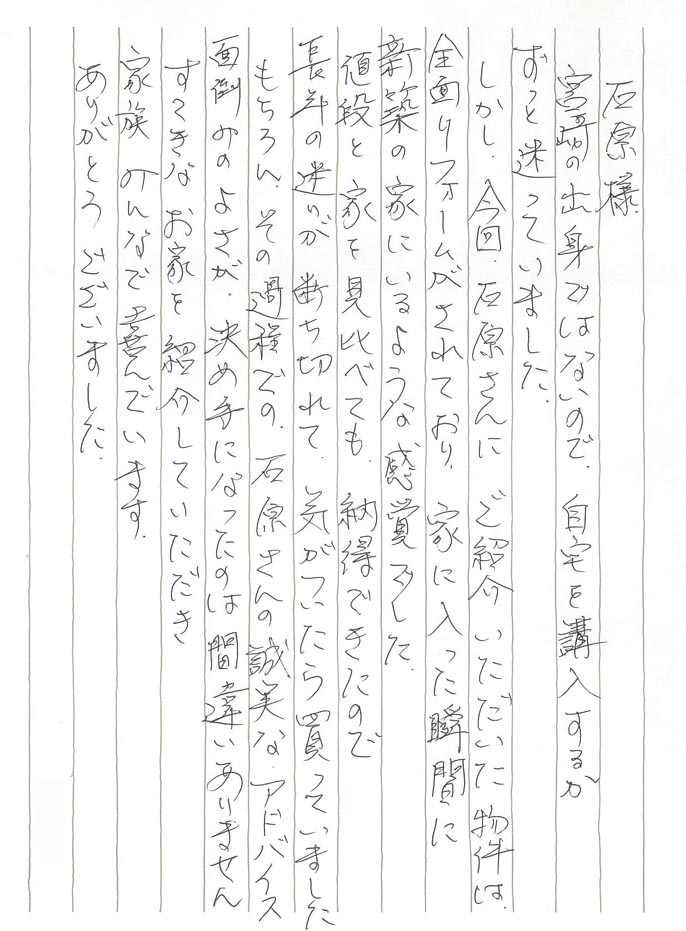 石原様
宮崎の出身ではないので、自宅を講入するか
ずっと迷っていました。
しかし、今回、石原さんに ご紹介いただいた物件は、
全面リフォームがされており、家に入った瞬間に
新築の家にいるような感覚でした。
値段と家を見比べても、納得できたので
長年の迷いが断ち切れて、気がついたら買っていました
もちろん、その過程での、石原さんの誠実な、アドバイス
面倒みのよさが、決め手になったのは間違いありません
すてきなお家を紹介していただき
家族みんなで喜んでいます。
ありがとうございました。